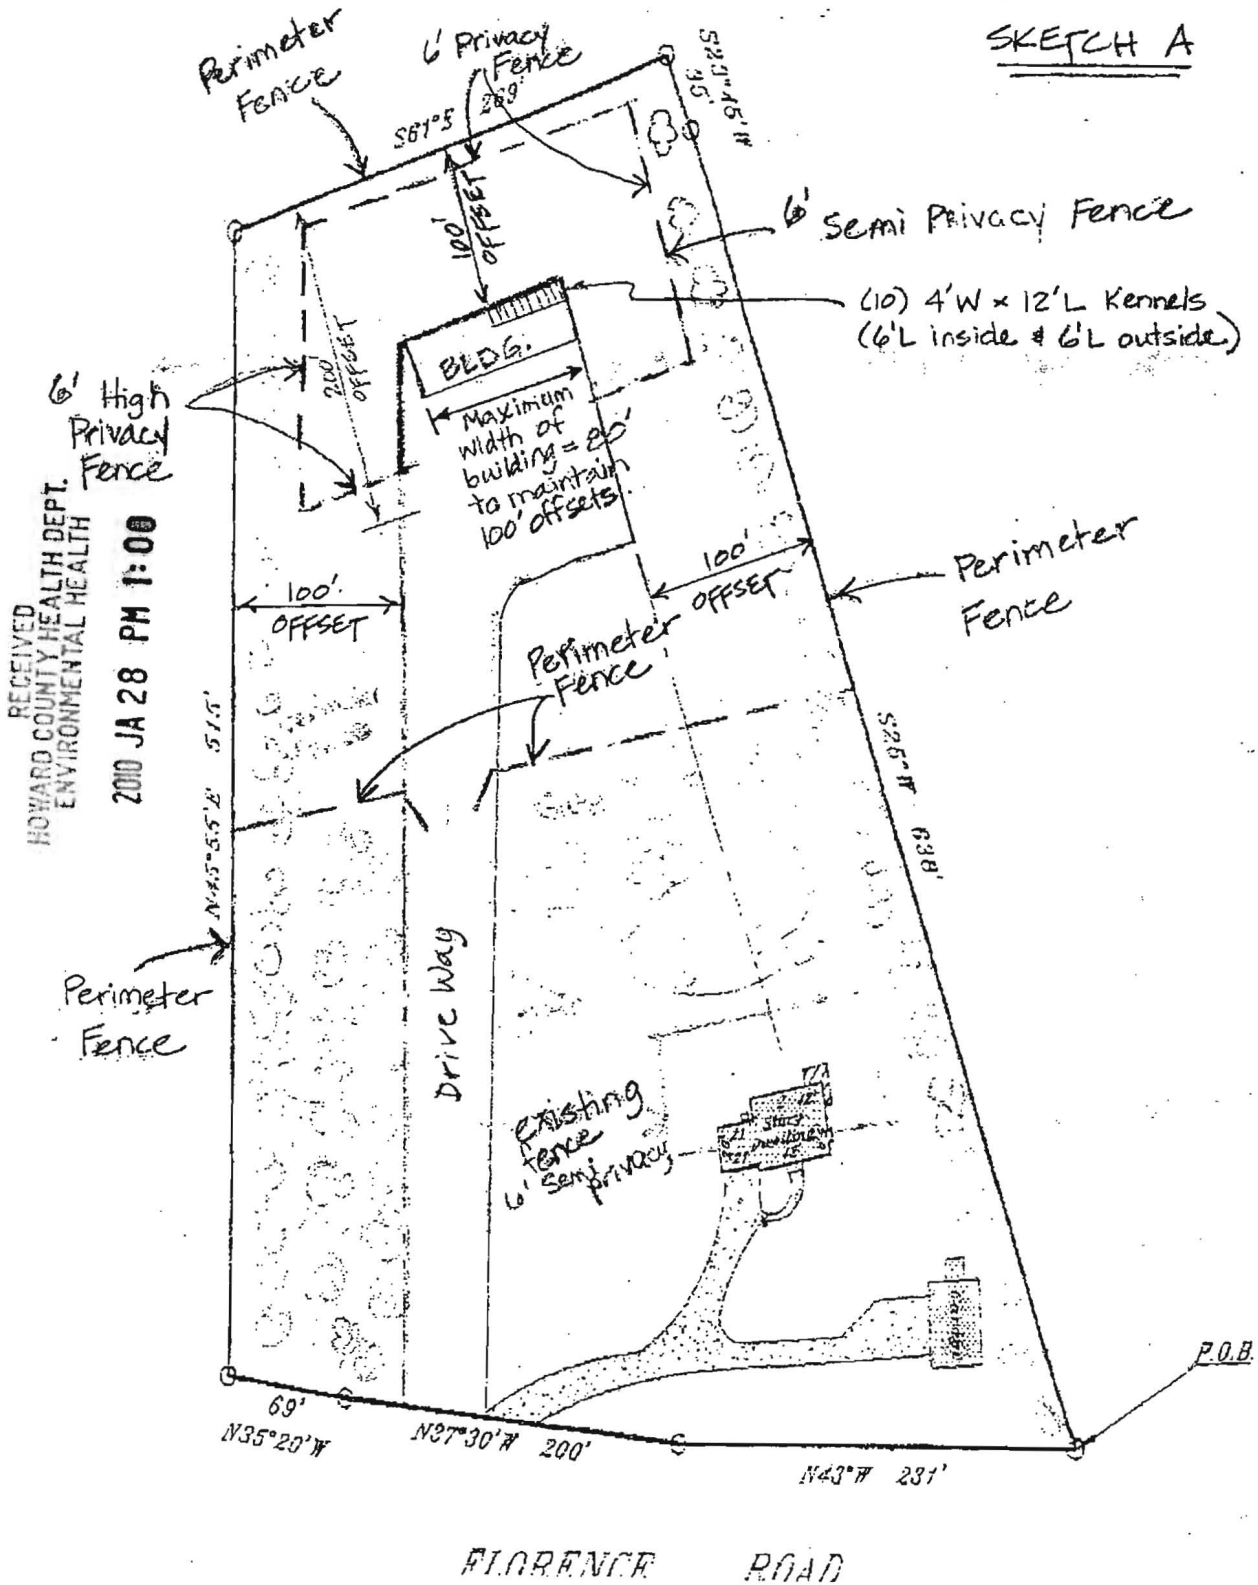 SKETCH A
Perimeter
Fence
6' Privacy
Fence
S61°E 269'
S23°45'W
35'
100'
OFFSET
6' Semi Privacy Fence
(10) 4'W x 12'L Kennels
(6'L inside & 6'L outside)
BLDG.
200'
OFFSET
6' High
Privacy
Fence
Maximum
width of
building = 80'
to maintain
100' offsets.
RECEIVED
HOWARD COUNTY HEALTH DEPT.
ENVIRONMENTAL HEALTH
2010 JA 28 PM 1:00
100'
OFFSET
100'
OFFSET
Perimeter
Fence
Perimeter
Fence
N45°55'E 515'
S25°W 638'
Perimeter
Fence
Drive Way
existing
fence
6' semi
privacy
Story
P.O.B.
69'
N35°20'W
N37°30'W 200'
N43°W 231'
FLORENCE ROAD